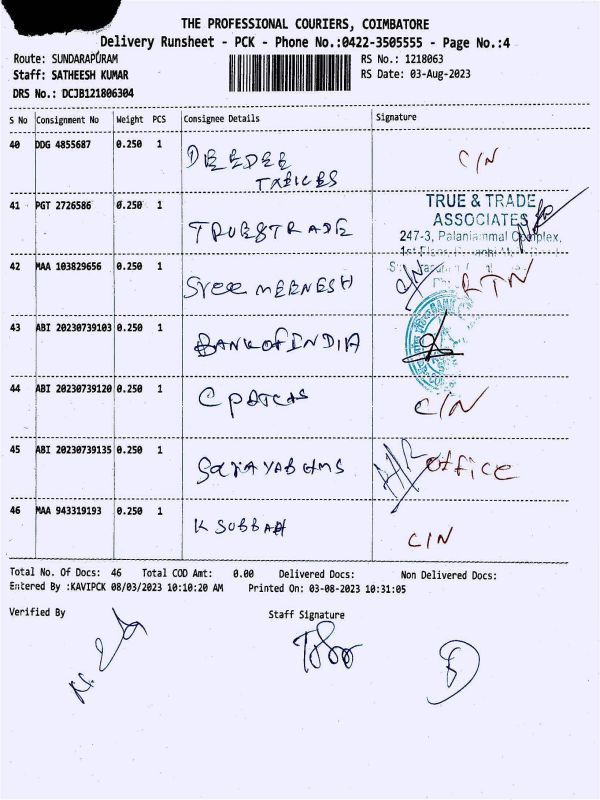 THE PROFESSIONAL COURIERS, COIMBATORE
Delivery Runsheet - PCK - Phone No.:0422-3505555 - Page No.:4
Route: SUNDARAPURAM
RS No.: 1218063
Staff: SATHEESH KUMAR
RS Date: 03-Aug-2023
DRS No.: DCJB121806304
S No Consignment No Weight PCS Consignee Details Signature
40 DDG 4855687 0.250 1 DEEDEE C/N
41 PGT 2726586 0.250 1 TRUE&TRADE
TRUE & TRADE
ASSOCIATES
247-3, Palaniammal Complex,
42 MAA 103829656 0.250 1 Sree MEENESH C/N RTN
43 ABI 20230739103 0.250 1 BANK OF INDIA
44 ABI 20230739120 0.250 1 C/N
45 ABI 20230739135 0.250 1 office
46 MAA 943319193 0.250 1 K SUBBAH C/N
Total No. Of Docs: 46 Total COD Amt: 0.00 Delivered Docs: Non Delivered Docs:
Entered By :KAVIPCK 08/03/2023 10:10:20 AM Printed On: 03-08-2023 10:31:05
Verified By Staff Signature